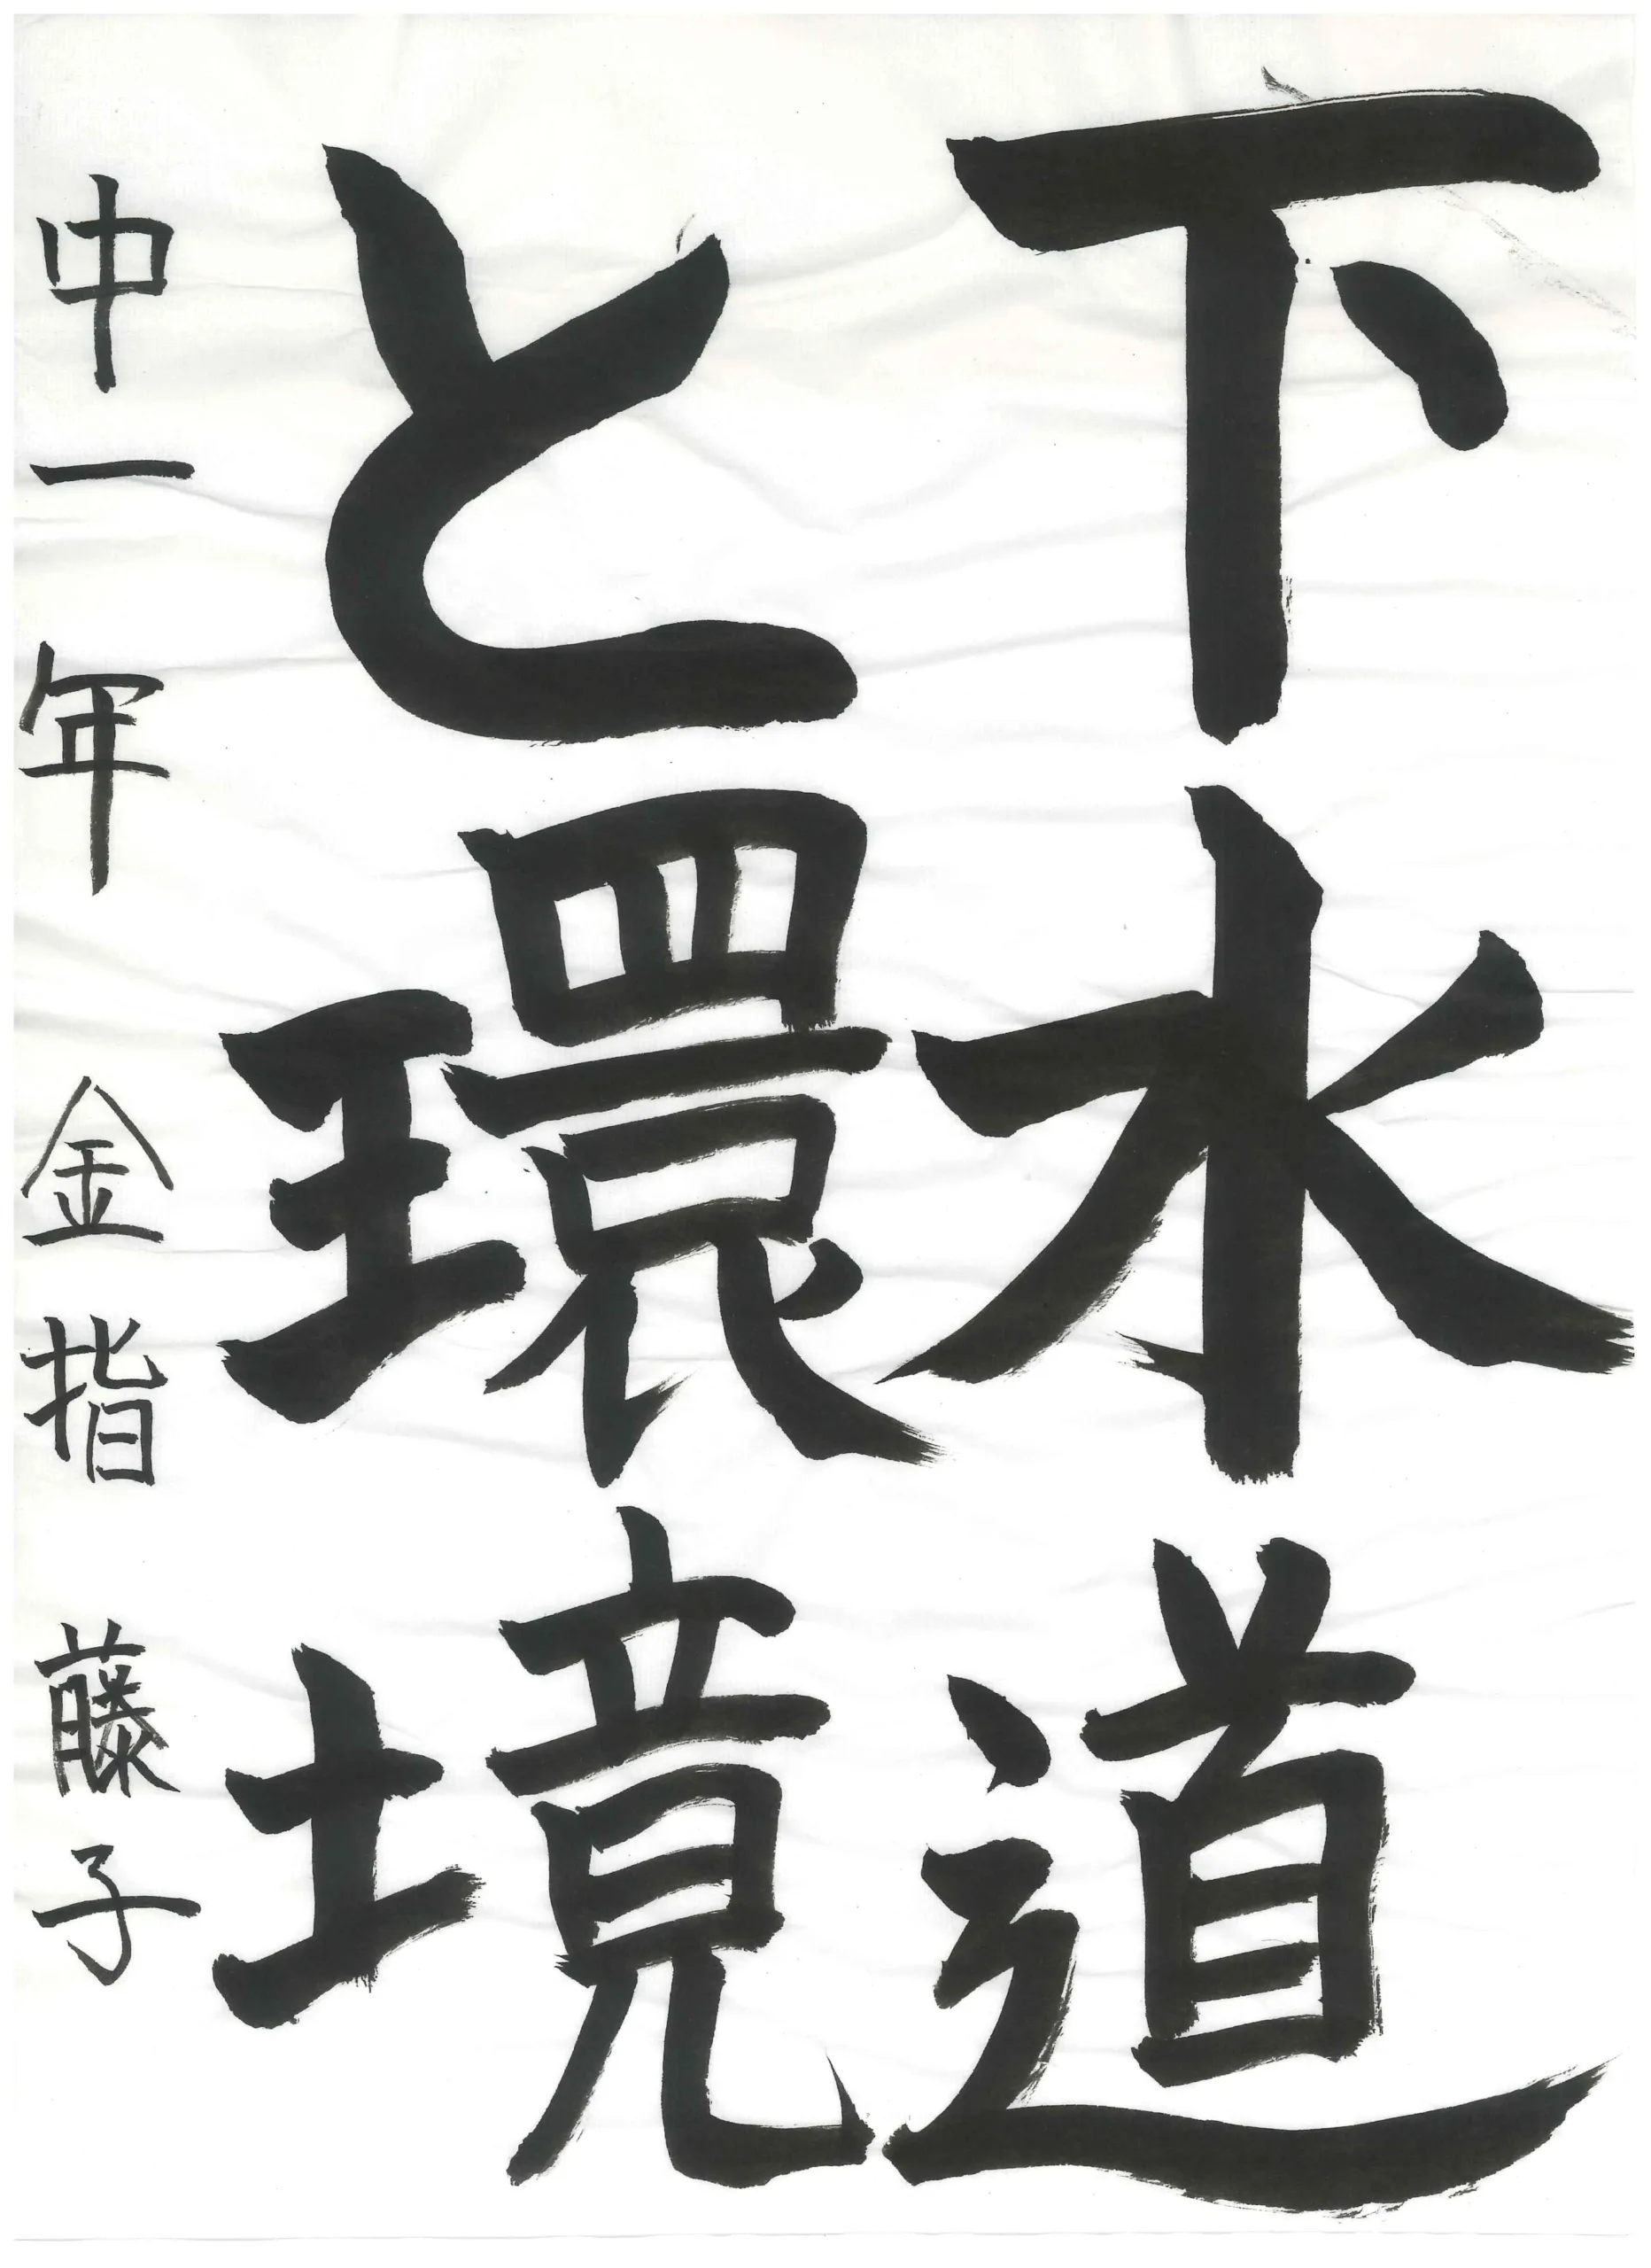 下水道
と環境
中一年 金指 藤子